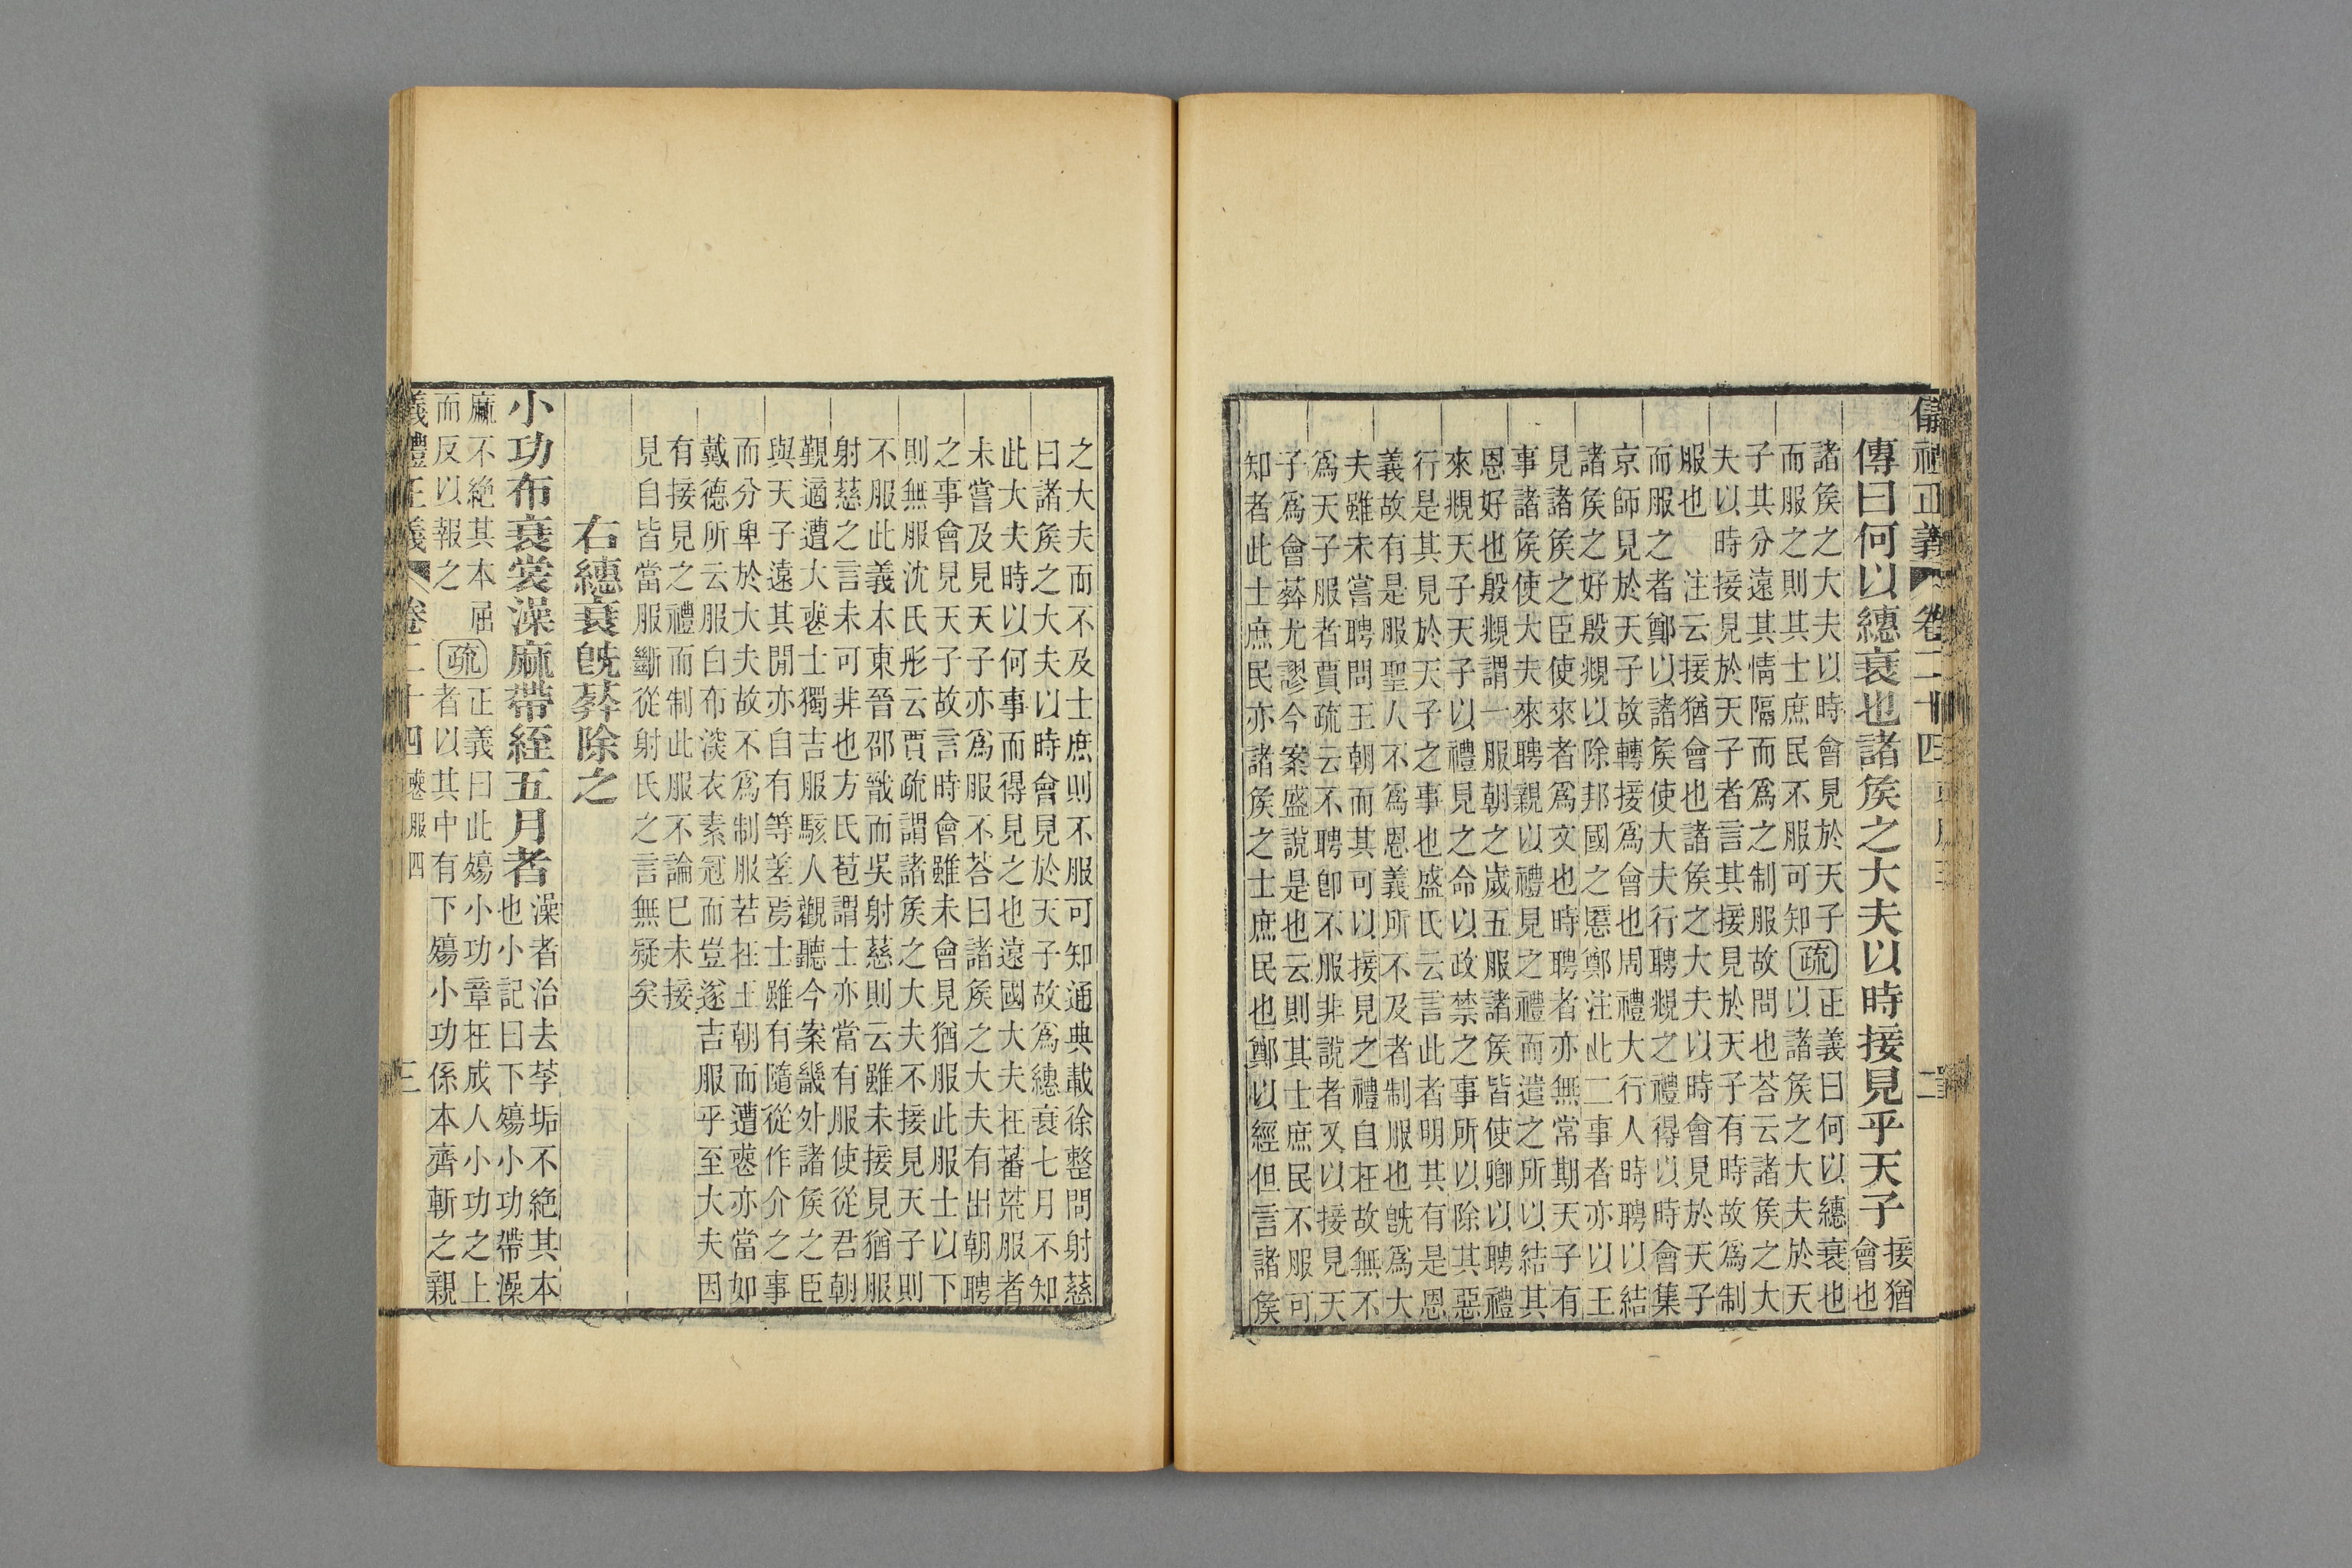 儀禮正義 卷二十四 二
傳曰何以繐衰也諸矦之大夫以時接見乎天子接猶
會也
諸矦之大夫以時會見於天子疏正義曰何以繐衰也
而服之則其士庶民不服可知以諸矦之大夫於天
子其分遠其情隔而爲之制服故問也荅云諸矦之大
夫以時接見於天子者言其接見於天子有時故爲制
服也 注云接猶會也諸矦之大夫以時會見於天子
而服之者鄭以諸矦使大夫行聘覜之禮得以時會集
京師見於天子故轉接爲會也周禮大行人時聘以結
諸矦之好殷覜以除邦國之慝鄭注此二事者亦以王
見諸矦之臣使來者爲文也時聘者亦無常期天子有
事諸矦使大夫來聘親以禮見之禮而遣之所以結其
恩好也殷覜謂一服朝之歲五服諸矦皆使卿以聘禮
來覜天子天子以禮見之命以政禁之事所以除其惡
行是其見於天子之事也盛氏云言此者明其有是恩
義故有是服聖人不爲恩義所不及者制服也旣爲大
夫雖未嘗聘問王朝而其可以接見之禮自在故無不
爲天子服者賈疏云不聘卽不服非說者又以接見天
子爲會葬尤謬今案盛說是也云則其士庶民不服可
知者此士庶民亦諸矦之士庶民也鄭以經但言諸矦
之大夫而不及士庶則不服可知通典載徐整問射慈
曰諸矦之大夫以時會見於天子故爲繐衰七月不知
此大夫時以何事而得見之也遠國大夫在蕃荒服者
未嘗及見天子亦爲服不荅曰諸矦之大夫有出朝聘
之事會見天子故言時會雖未會見猶服此服士以下
則無服沈氏彤云賈疏謂諸矦之大夫不接見天子則
不服此義本東晉邵戩而吳射慈則云雖未接見猶服
射慈之言未可非也方氏苞謂士亦當有服使從君朝
覲適遭大喪士獨吉服駭人觀聽今案畿外諸矦之臣
與天子遠其閒亦自有等差焉士雖有隨從作介之事
而分卑於大夫故不爲制服若在王朝而遭喪亦當如
戴德所云服白布深衣素冠而豈遂吉服乎至大夫因
有接見之禮而制此服不論已未接
見自皆當服斷從射氏之言無疑矣
右繐衰旣葬除之
小功布衰裳澡麻帶絰五月者澡者治去莩垢不絕其本
也小記曰下殤小功帶澡
麻不絕其本屈
而反以報之 疏正義曰此殤小功章在成人小功之上
者以其中有下殤小功係本齊斬之親
儀禮正義 卷二十四 喪服四 三